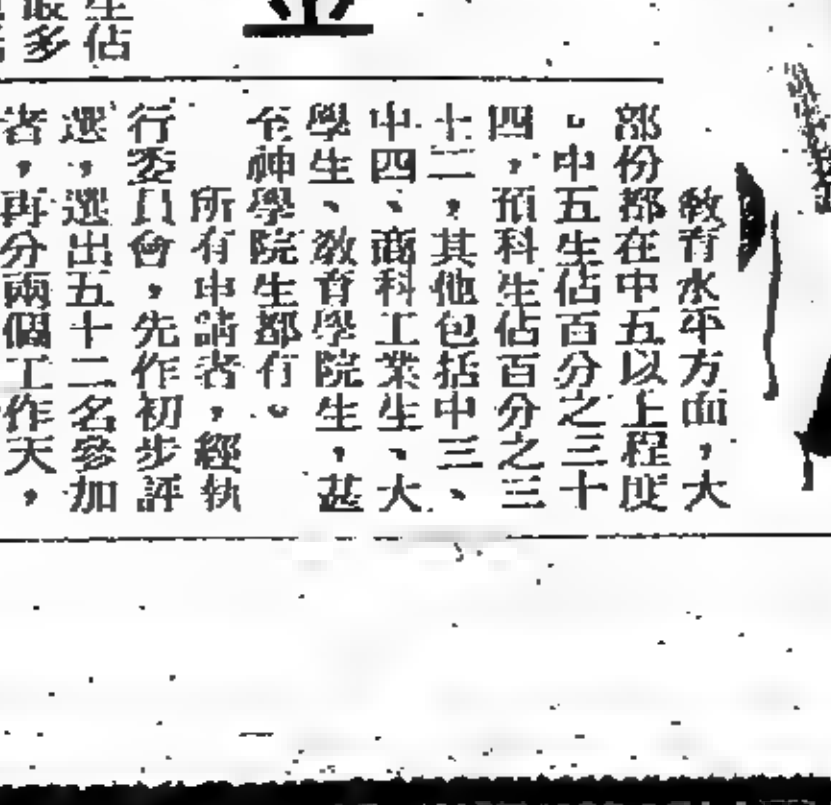 教育水平方面，大
部份都在中五以上程度
。中五生佔百分之三十
四，預科生佔百分之三
十二，其他包括中三、
中四、商科工業生、大
學生、教育學院生，甚
至神學院生都有。
所有申請者，經執
行委員會，先作初步評
選，選出五十二名參加
者，再分兩個工作天，
生佔
最多